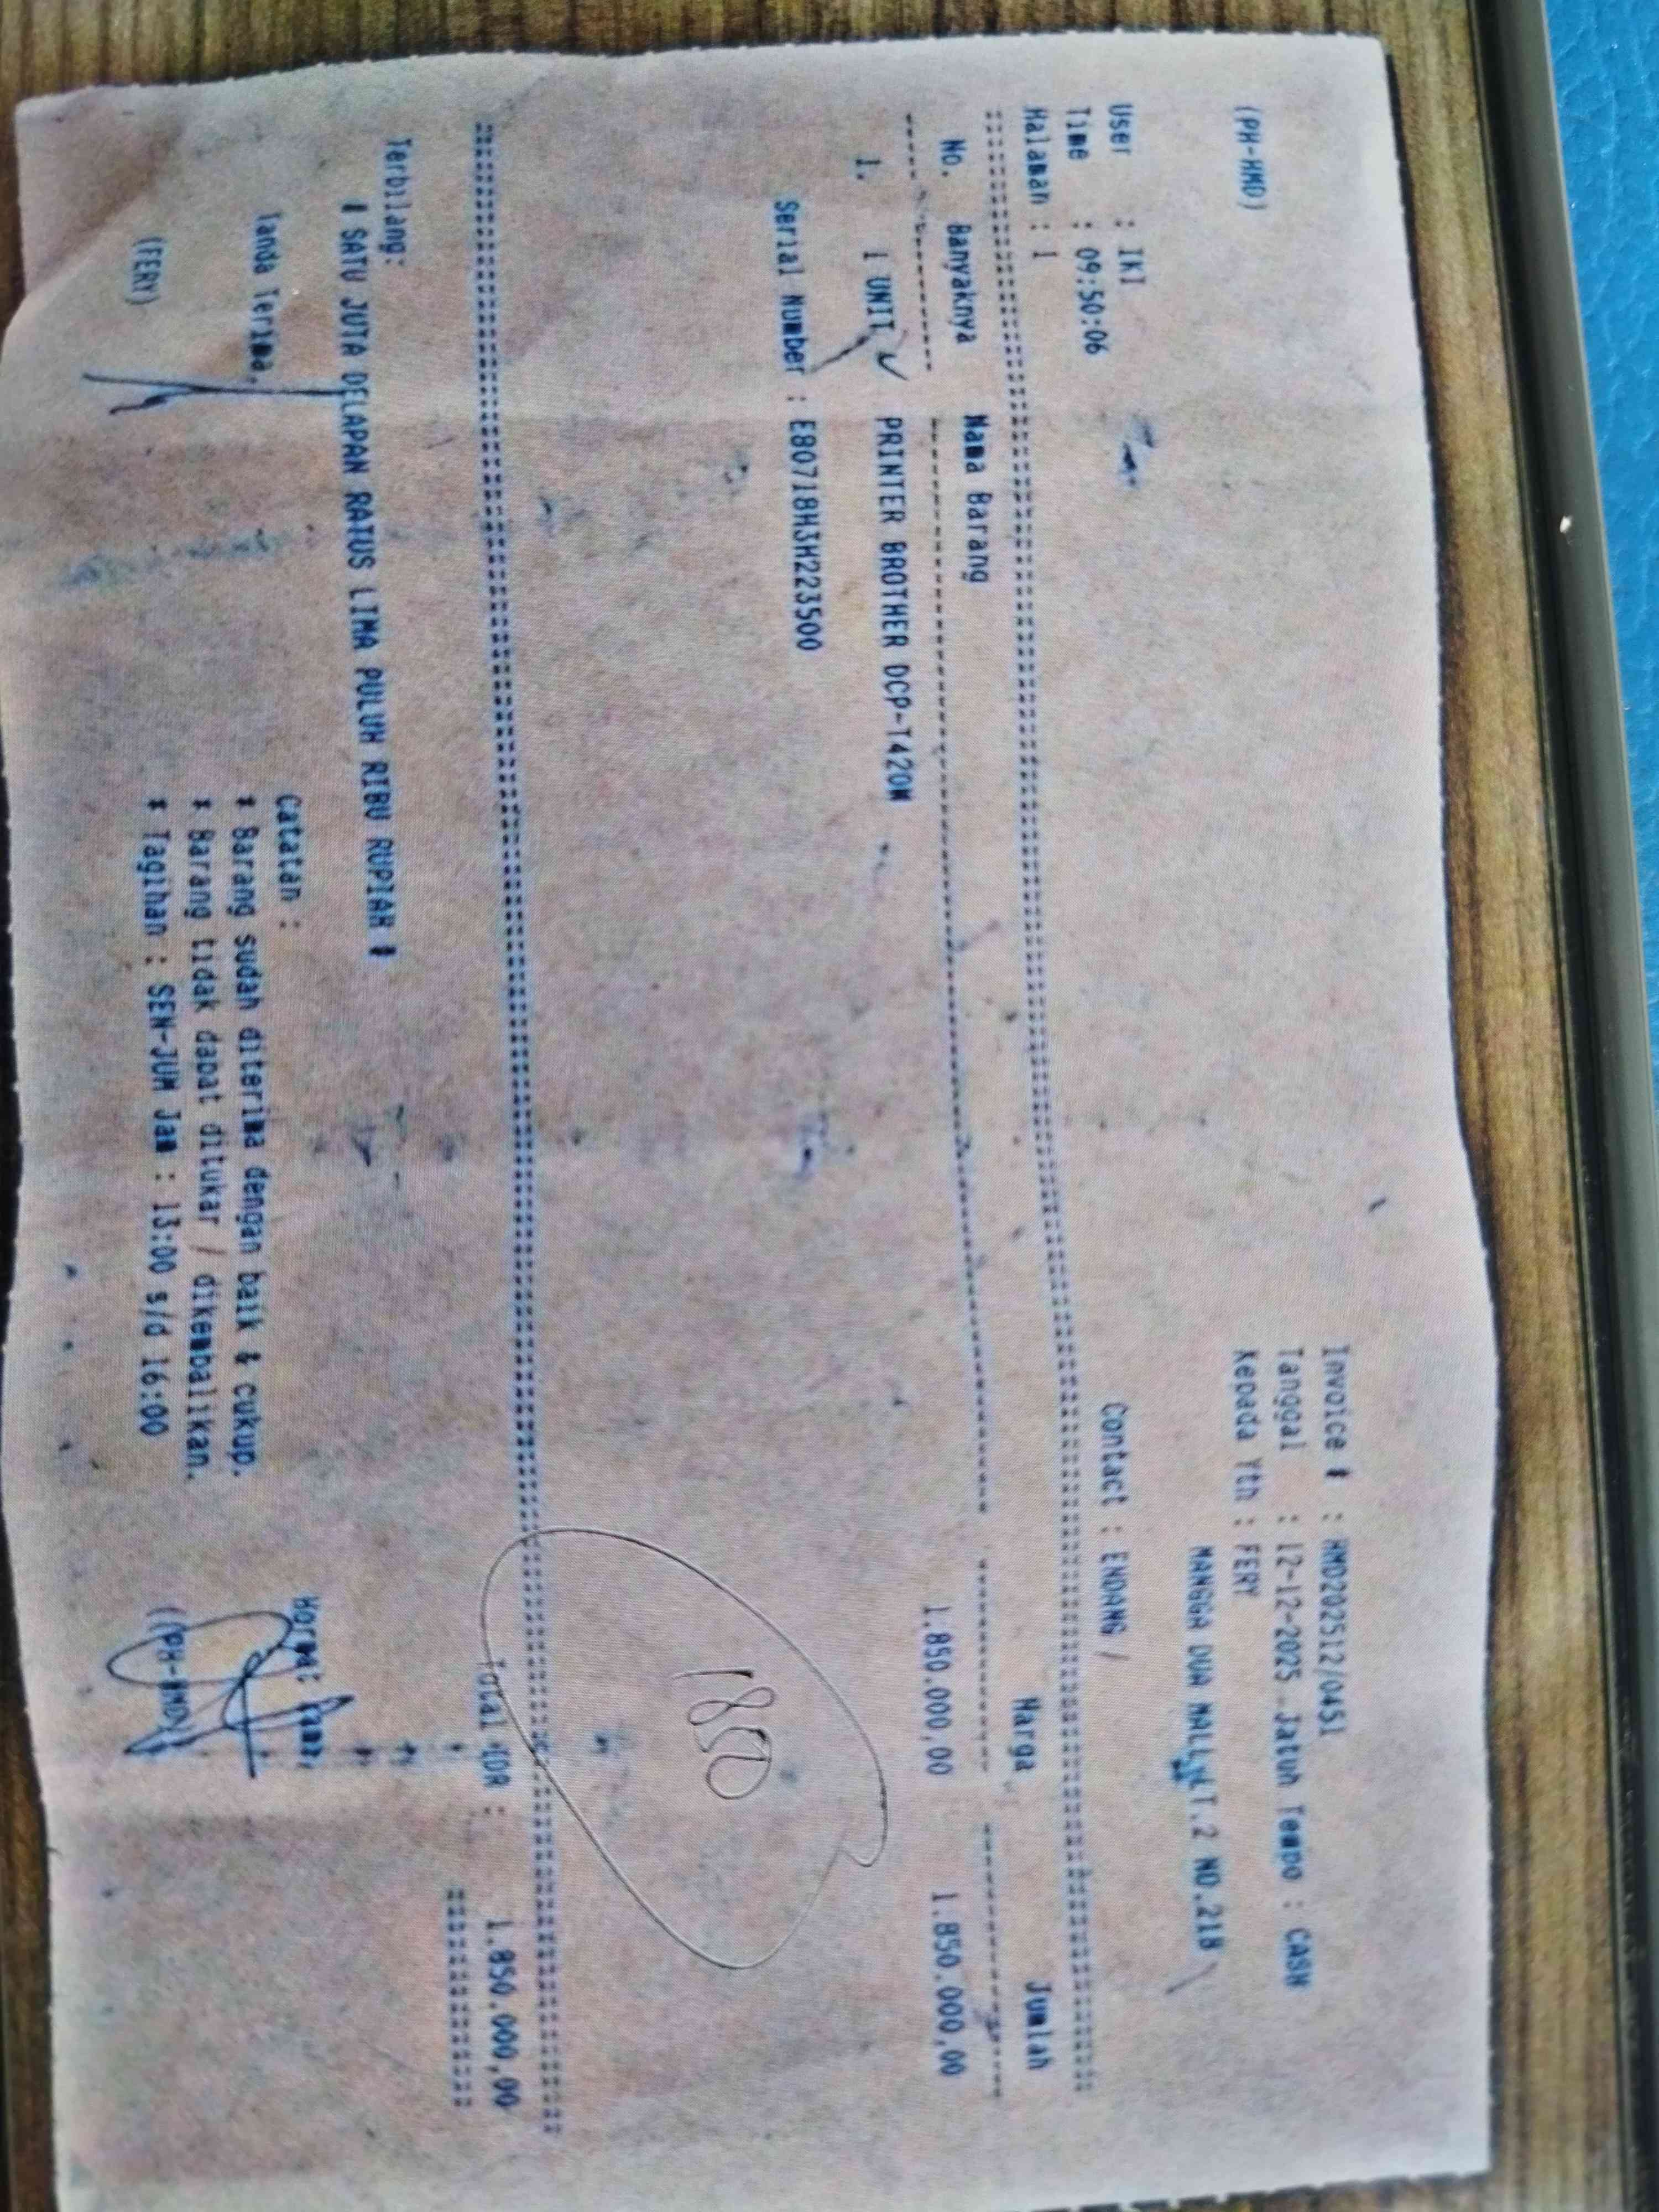 (PH-HMD)
Invoice # : HMD202512/0451
Tanggal : 12-12-2025 Jatuh Tempo : CASH
Kepada Yth : FERY
MANGGA DUA MALL LT.2 NO.21B
User : IKI
Time : 09:50:06
Halaman : 1
Contact : ENDANG /
No. Banyaknya Nama Barang Harga Jumlah
1. 1 UNIT PRINTER BROTHER DCP-T420W 1.850.000,00 1.850.000,00
Serial Number : E80718H3H223500
Total IDR : 1.850.000,00
Terbilang:
# SATU JUTA DELAPAN RATUS LIMA PULUH RIBU RUPIAH #
Tanda Terima, Hormat Kami,
Catatan :
* Barang sudah diterima dengan baik & cukup.
* Barang tidak dapat ditukar / dikembalikan.
* Tagihan : SEN-JUM Jam : 13:00 s/d 16:00
(FERY) (PH-HMD)